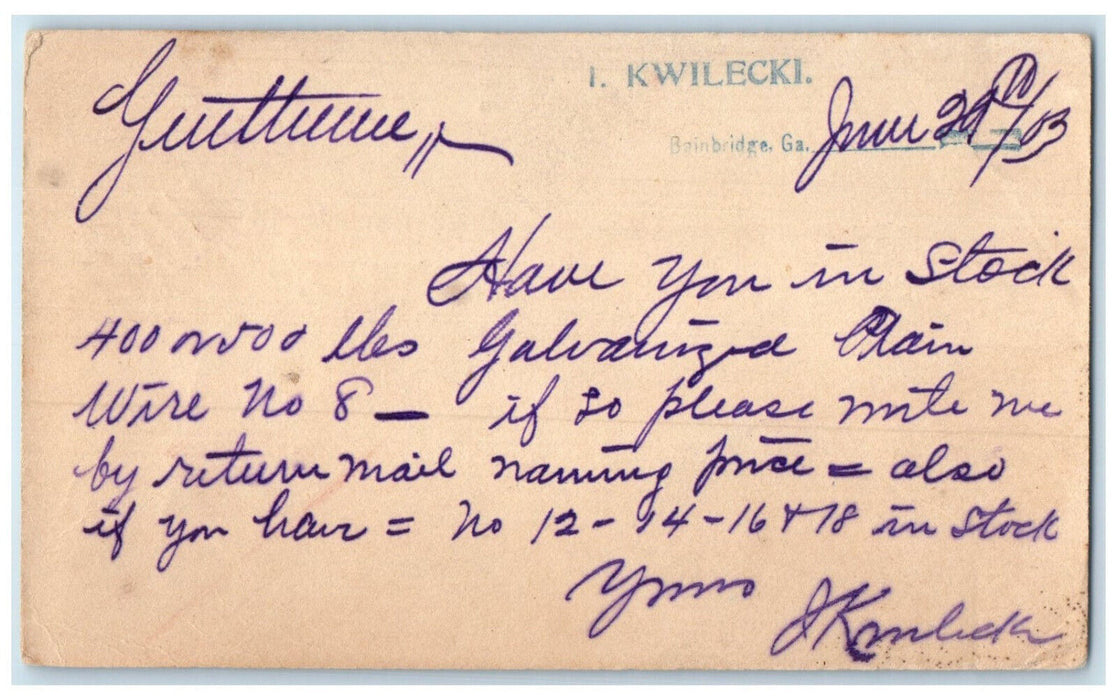 I. KWILECKI.
Bainbridge, Ga. June 29th/03
Gentlemen,,
Have you in Stock
400 or 500 lbs Galvanized Plain
Wire No 8 — if so please write me
by return mail naming price = also
if you have = No 12 - 14 - 16 & 18 in Stock
Yours
I Kwilecki